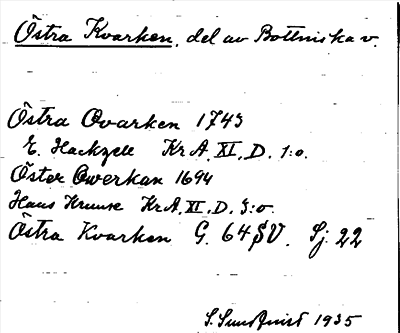 Östra Kvarken, del av Bottniska v.
Östra Qvarken 1743
E. Hackzell Kr A. XI. D. 1:o.
Öster Qwerkan 1694
Hans Kruuse Kr.A. XI. D. 3:o.
Östra Kvarken G. 64 SV. Sj. 22
S. Sundqvist 1935